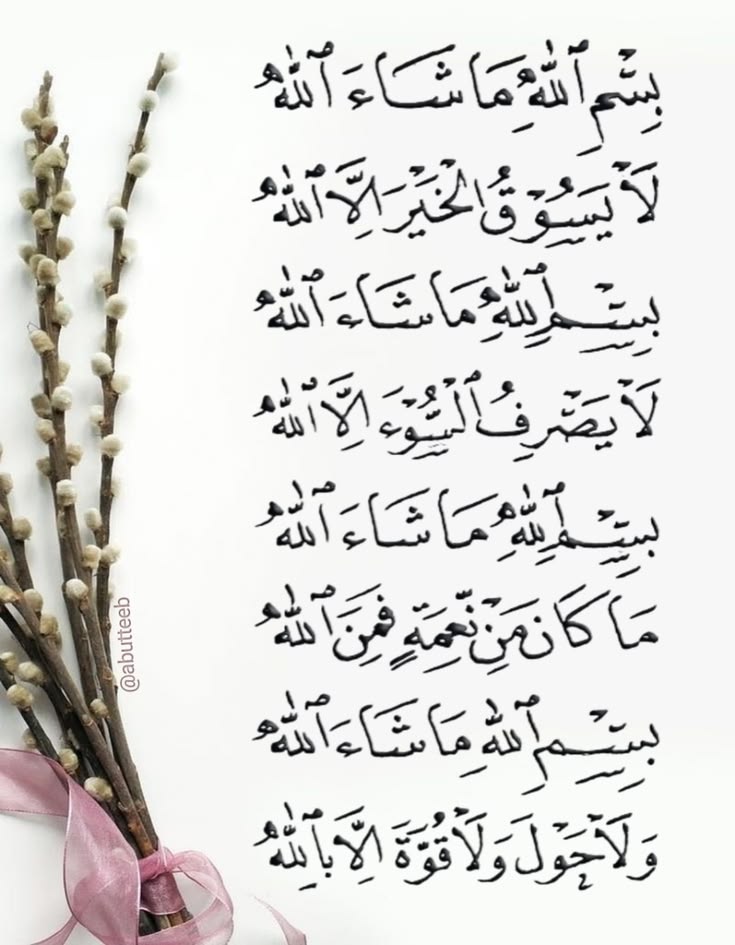 بِسْمِ ٱللّٰهِ مَا شَاءَ ٱللّٰهُ
لَا يَسُوْقُ الْخَيْرَ اِلَّا ٱللّٰهُ
بِسْمِ ٱللّٰهِ مَا شَاءَ ٱللّٰهُ
لَا يَصْرِفُ ٱلسُّوْءَ اِلَّا ٱللّٰهُ
بِسْمِ ٱللّٰهِ مَا شَاءَ ٱللّٰهُ
مَا كَانَ مِنْ نِّعْمَةٍ فَمِنَ ٱللّٰهِ
بِسْمِ ٱللّٰهِ مَا شَاءَ ٱللّٰهُ
وَلَا حَوْلَ وَلَا قُوَّةَ اِلَّا بِٱللّٰهِ
@abutteeb